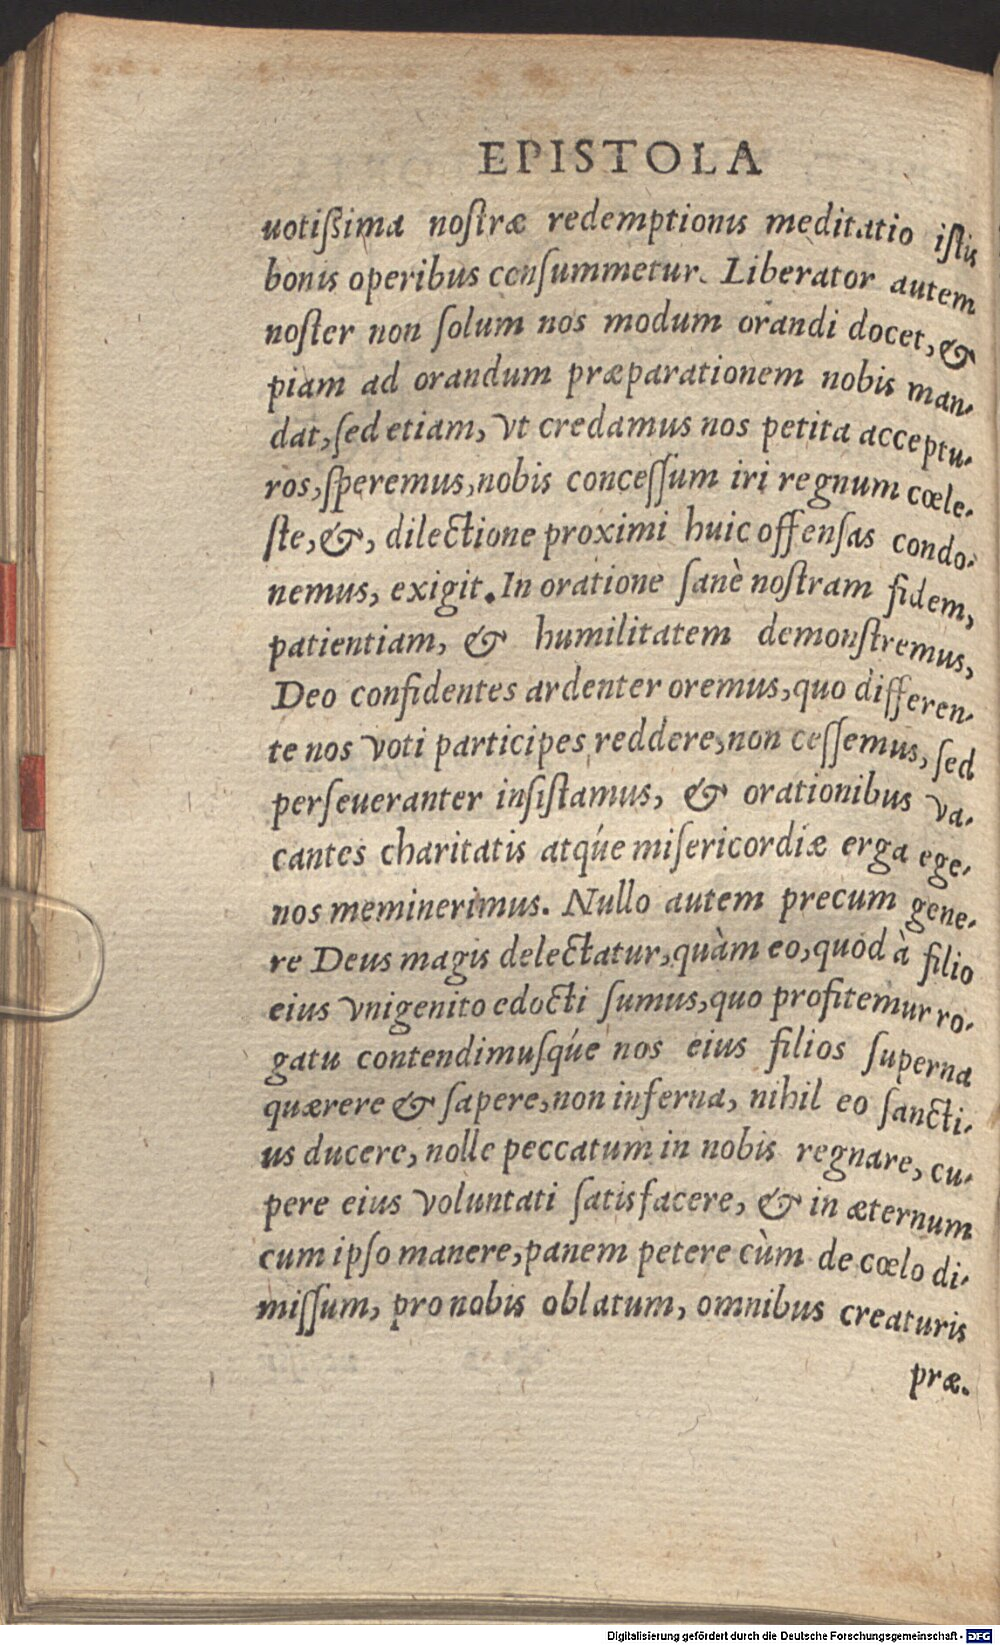 EPISTOLA
uotißima nostræ redemptionis meditatio istis
bonis operibus consummetur. Liberator autem
noster non solum nos modum orandi docet, &
piam ad orandum præparationem nobis man-
dat, sed etiam, vt credamus nos petita acceptu-
ros, speremus, nobis concessum iri regnum cœle-
ste, &, dilectione proximi huic offensas condo-
nemus, exigit. In oratione sanè nostram fidem,
patientiam, & humilitatem demonstremus,
Deo confidentes ardenter oremus, quo differen-
te nos voti participes reddere, non cessemus, sed
perseueranter insistamus, & orationibus va-
cantes charitatis atq́ue misericordiæ erga ege-
nos meminerimus. Nullo autem precum gene-
re Deus magis delectatur, quàm eo, quod à filio
eius vnigenito edocti sumus, quo profitemur ro-
gatu contendimusq́ue nos eius filios superna
quærere & sapere, non inferna, nihil eo sancti-
us ducere, nolle peccatum in nobis regnare, cu-
pere eius voluntati satisfacere, & in æternum
cum ipso manere, panem petere cùm de cœlo di-
missum, pro nobis oblatum, omnibus creaturis
præ-
Digitalisierung gefördert durch die Deutsche Forschungsgemeinschaft - DFG